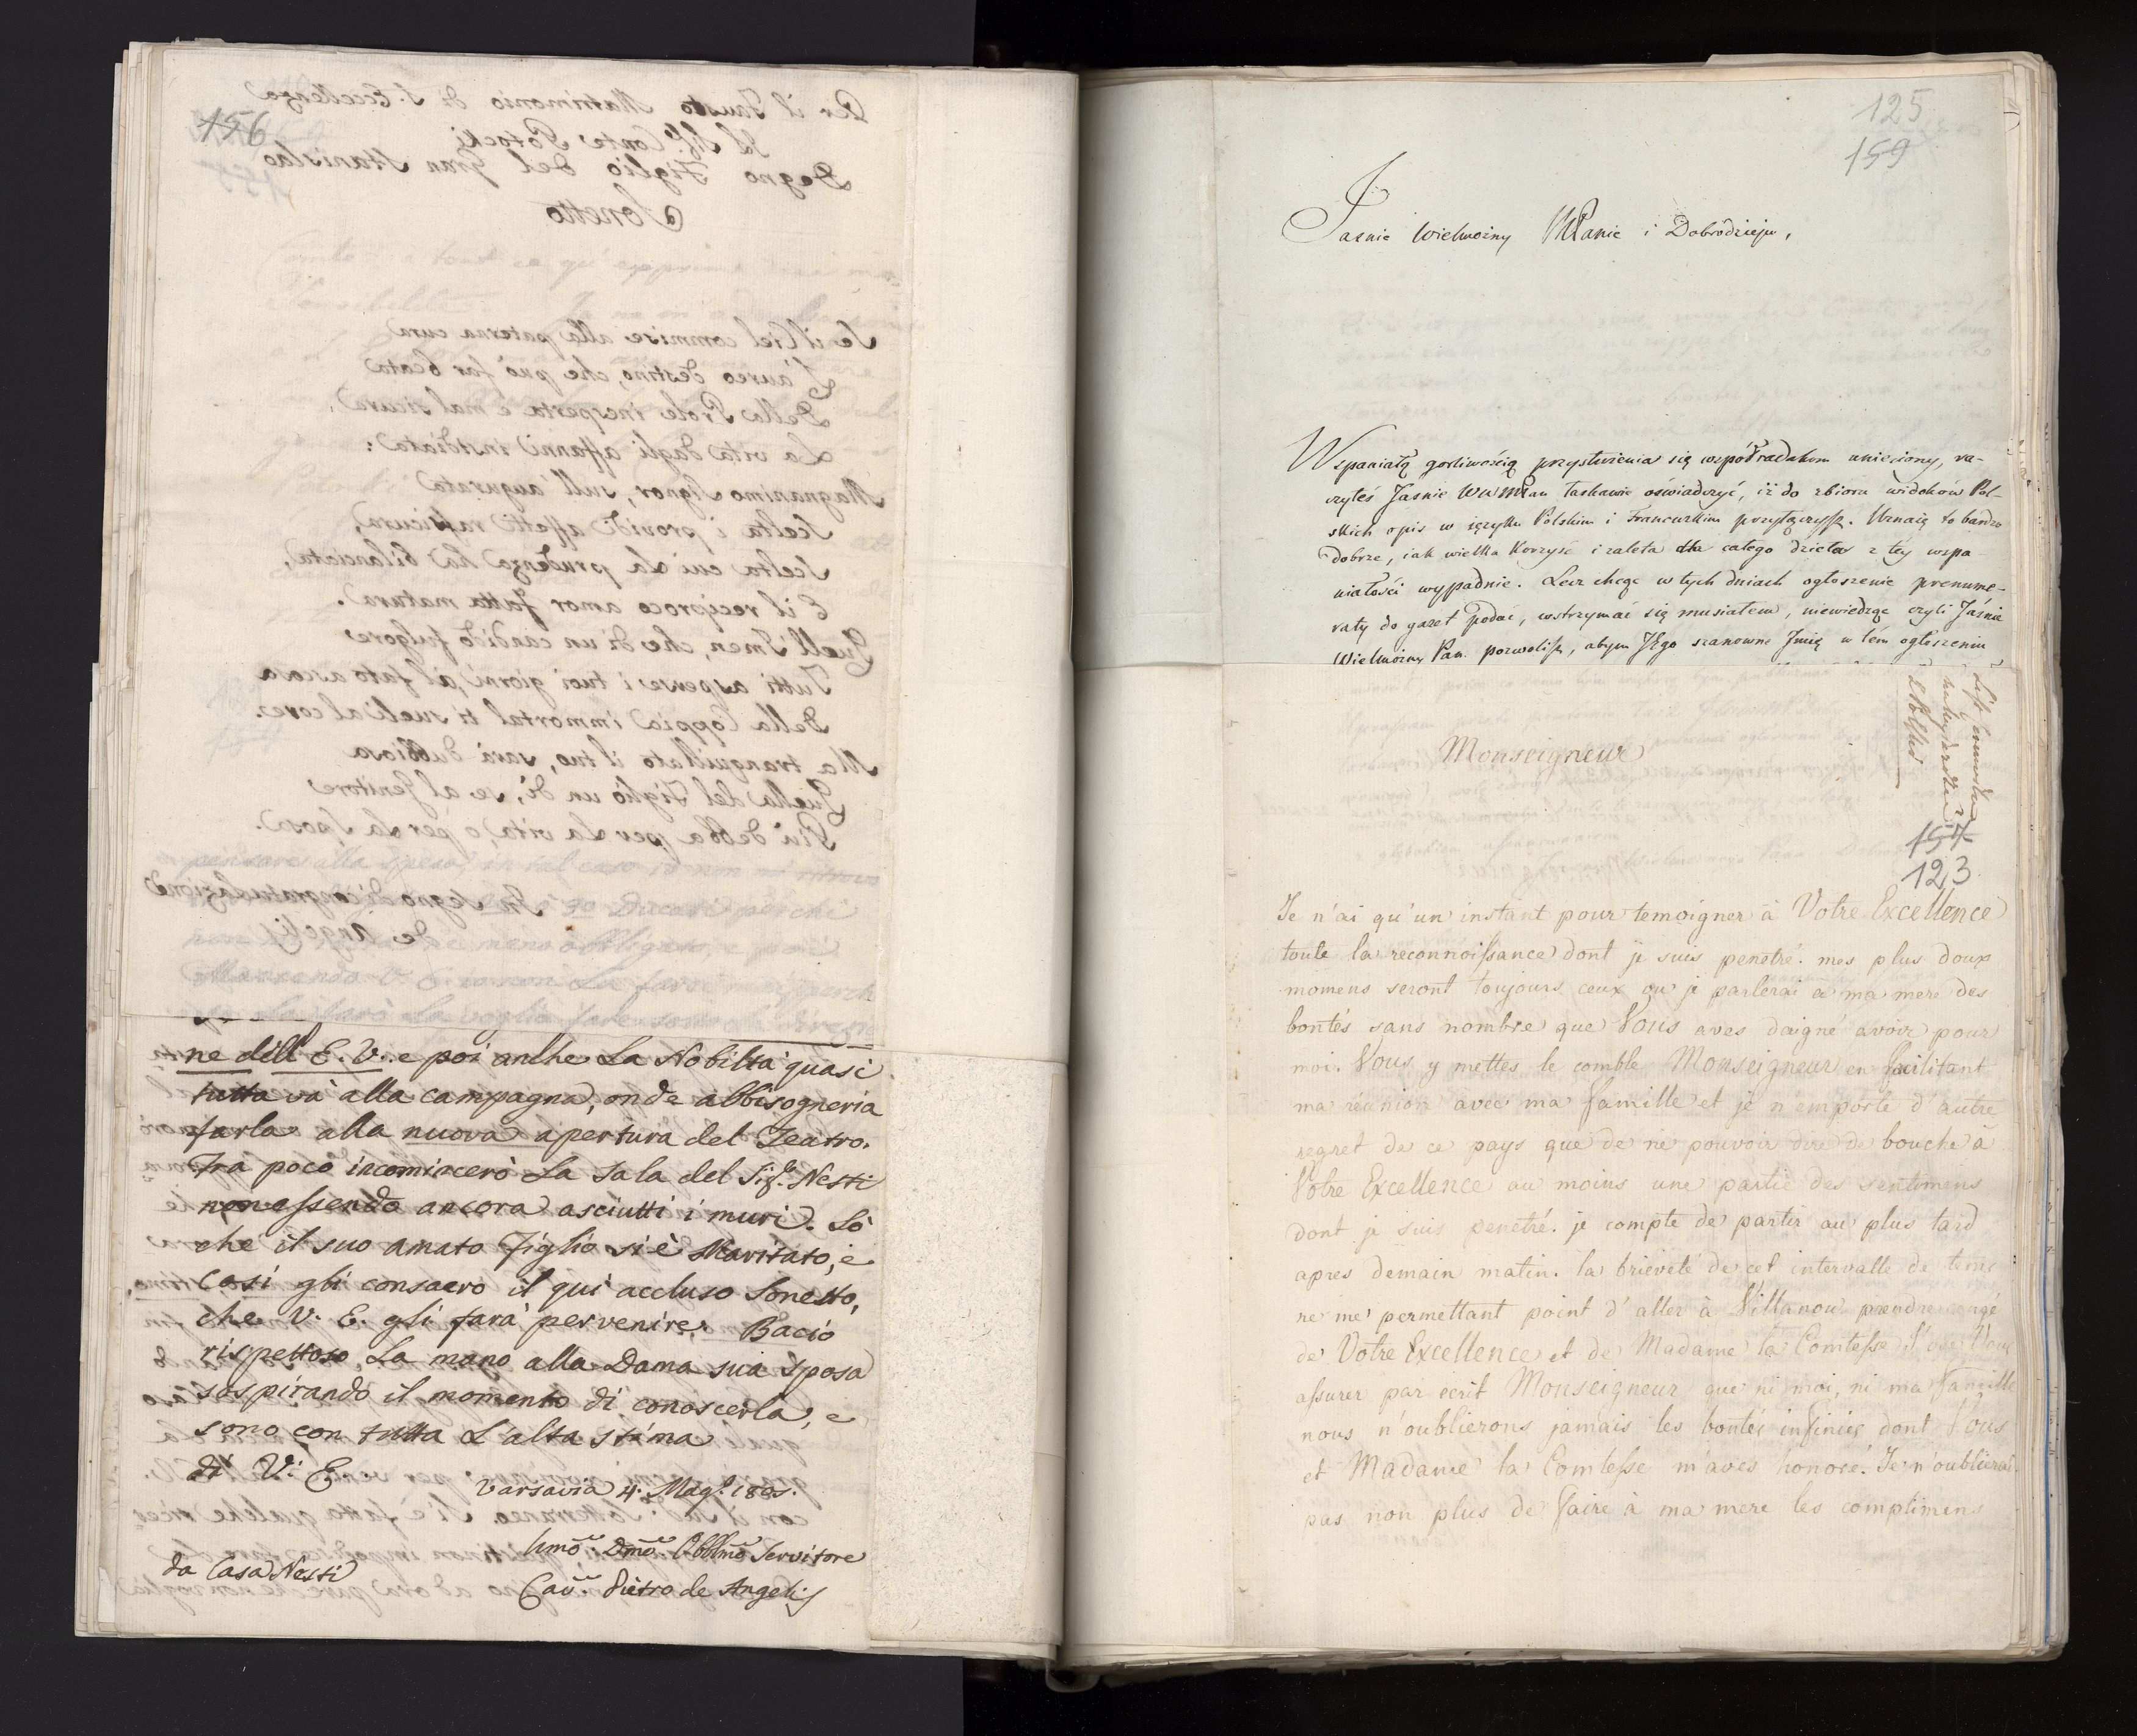 156
Per il Fausto Matrimonio di S. Eccellenza
Il Sig.r Conte Potocki
Degno Figlio del Gran Stanislao
Sonetto
Se il Ciel commise alla paterna cura
L'aureo destino, che può far beata
Della Prole inesperta e mal sicura,
La vita dagli affanni insidiata:
Magnanimo Signor, sull' augurata
Scelta i providi affetti rassicura,
Scelta cui la prudenza ha bilanciata,
E il reciproco amor fatta matura.
Quell' Imen, che di un candido fulgore
Tutti asperse i tuoi giorni, al fato ascosa
Della Coppia immortal ti sveli al core.
Ma tranquillato il tuo, sarà dubbiosa
Quella del Figlio un dì, se al Genitore
Più debba per la vita, o per la Sposa.
In segno di congratulazione
de Angelis
ne dell' E. V. e poi anche La Nobiltà quasi
tutta và alla campagna, onde abbisogneria
farla alla nuova apertura del Teatro.
Fra poco incomincerò La sala del Sig.r Nesti
non essendo ancora asciutti i muri. Sò
che il suo amato Figlio si è Maritato, e
così gli consacro il quì accluso Sonetto,
che V. E. gli farà pervenire. Bacio
rispettoso La mano alla Dama sua Sposa
sospirando il momento di conoscerla, e
sono con tutta L'alta stima
di V: E.
Varsavia 4. Mag.o 1805.
Umo: Dmo: Obblmo Servitore
da Casa Nesti
Cav: Pietro de Angelis
125
159
Jasnie Wielmożny MPanie i Dobrodzieju,
Wspaniałą gorliwością przysłużenia się współrodakom uniesiony, ra-
czyłeś Jasnie WWMPan łaskawie oświadczyć, iż do zbioru widoków Pol-
skich opis w ięzyku Polskim i Francuzkim przyłączysz. Uznaię to bardzo
dobrze, iak wielka korzyść i zaleta dla całego dzieła z tey wspa-
niałości wypadnie. Lecz chcąc w tych dniach ogłoszenie prenume-
raty do gazet podać, wstrzymać się musiałem, niewiedząc czyli Jaśnie
Wielmożny Pan pozwolisz, abym JEgo szanowne Jmię w tém ogłoszeniu
157
123
Monseigneur
Je n'ai qu'un instant pour temoigner à Votre Excellence
toute la reconnoissance dont je suis penetré. mes plus doux
momens seront toujours ceux ou je parlerai a ma mere des
bontés sans nombre que Vous aves daigné avoir pour
moi. Vous y mettes le comble Monseigneur en facilitant
ma réunion avec ma famille et je n'emporte d'autre
regret de ce pays que de ne pouvoir dire de bouche à
Votre Excellence au moins une partie des sentimens
dont je suis penetré. je compte de partir au plus tard
apres demain matin. la brieveté de cet intervalle de tems
ne me permettant point d'aller à Villanow prendre congé
de Votre Excellence et de Madame la Comtesse j'ose Vous
assurer par ecrit Monseigneur que ni moi, ni ma famille
nous n'oublierons jamais les bontés infinies dont Vous
et Madame la Comtesse m'aves honoré. Je n'oublierai
pas non plus de faire à ma mere les complimens